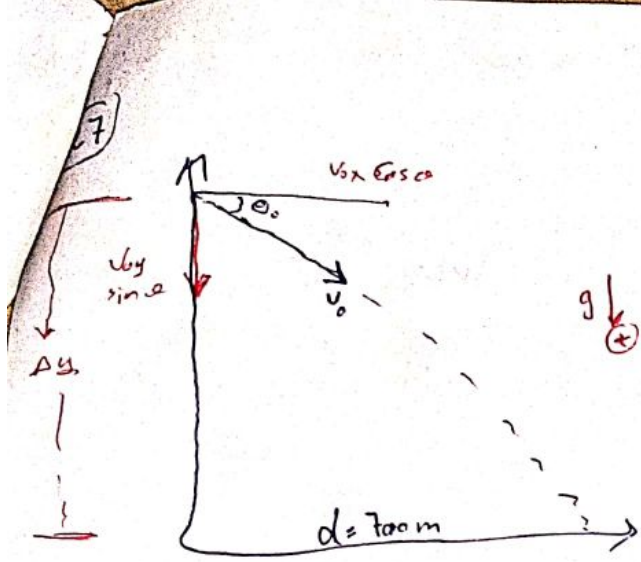 7
v₀x cos θ
θ₀
v₀y
sin θ
v₀
g
+
Δy
d = 700 m